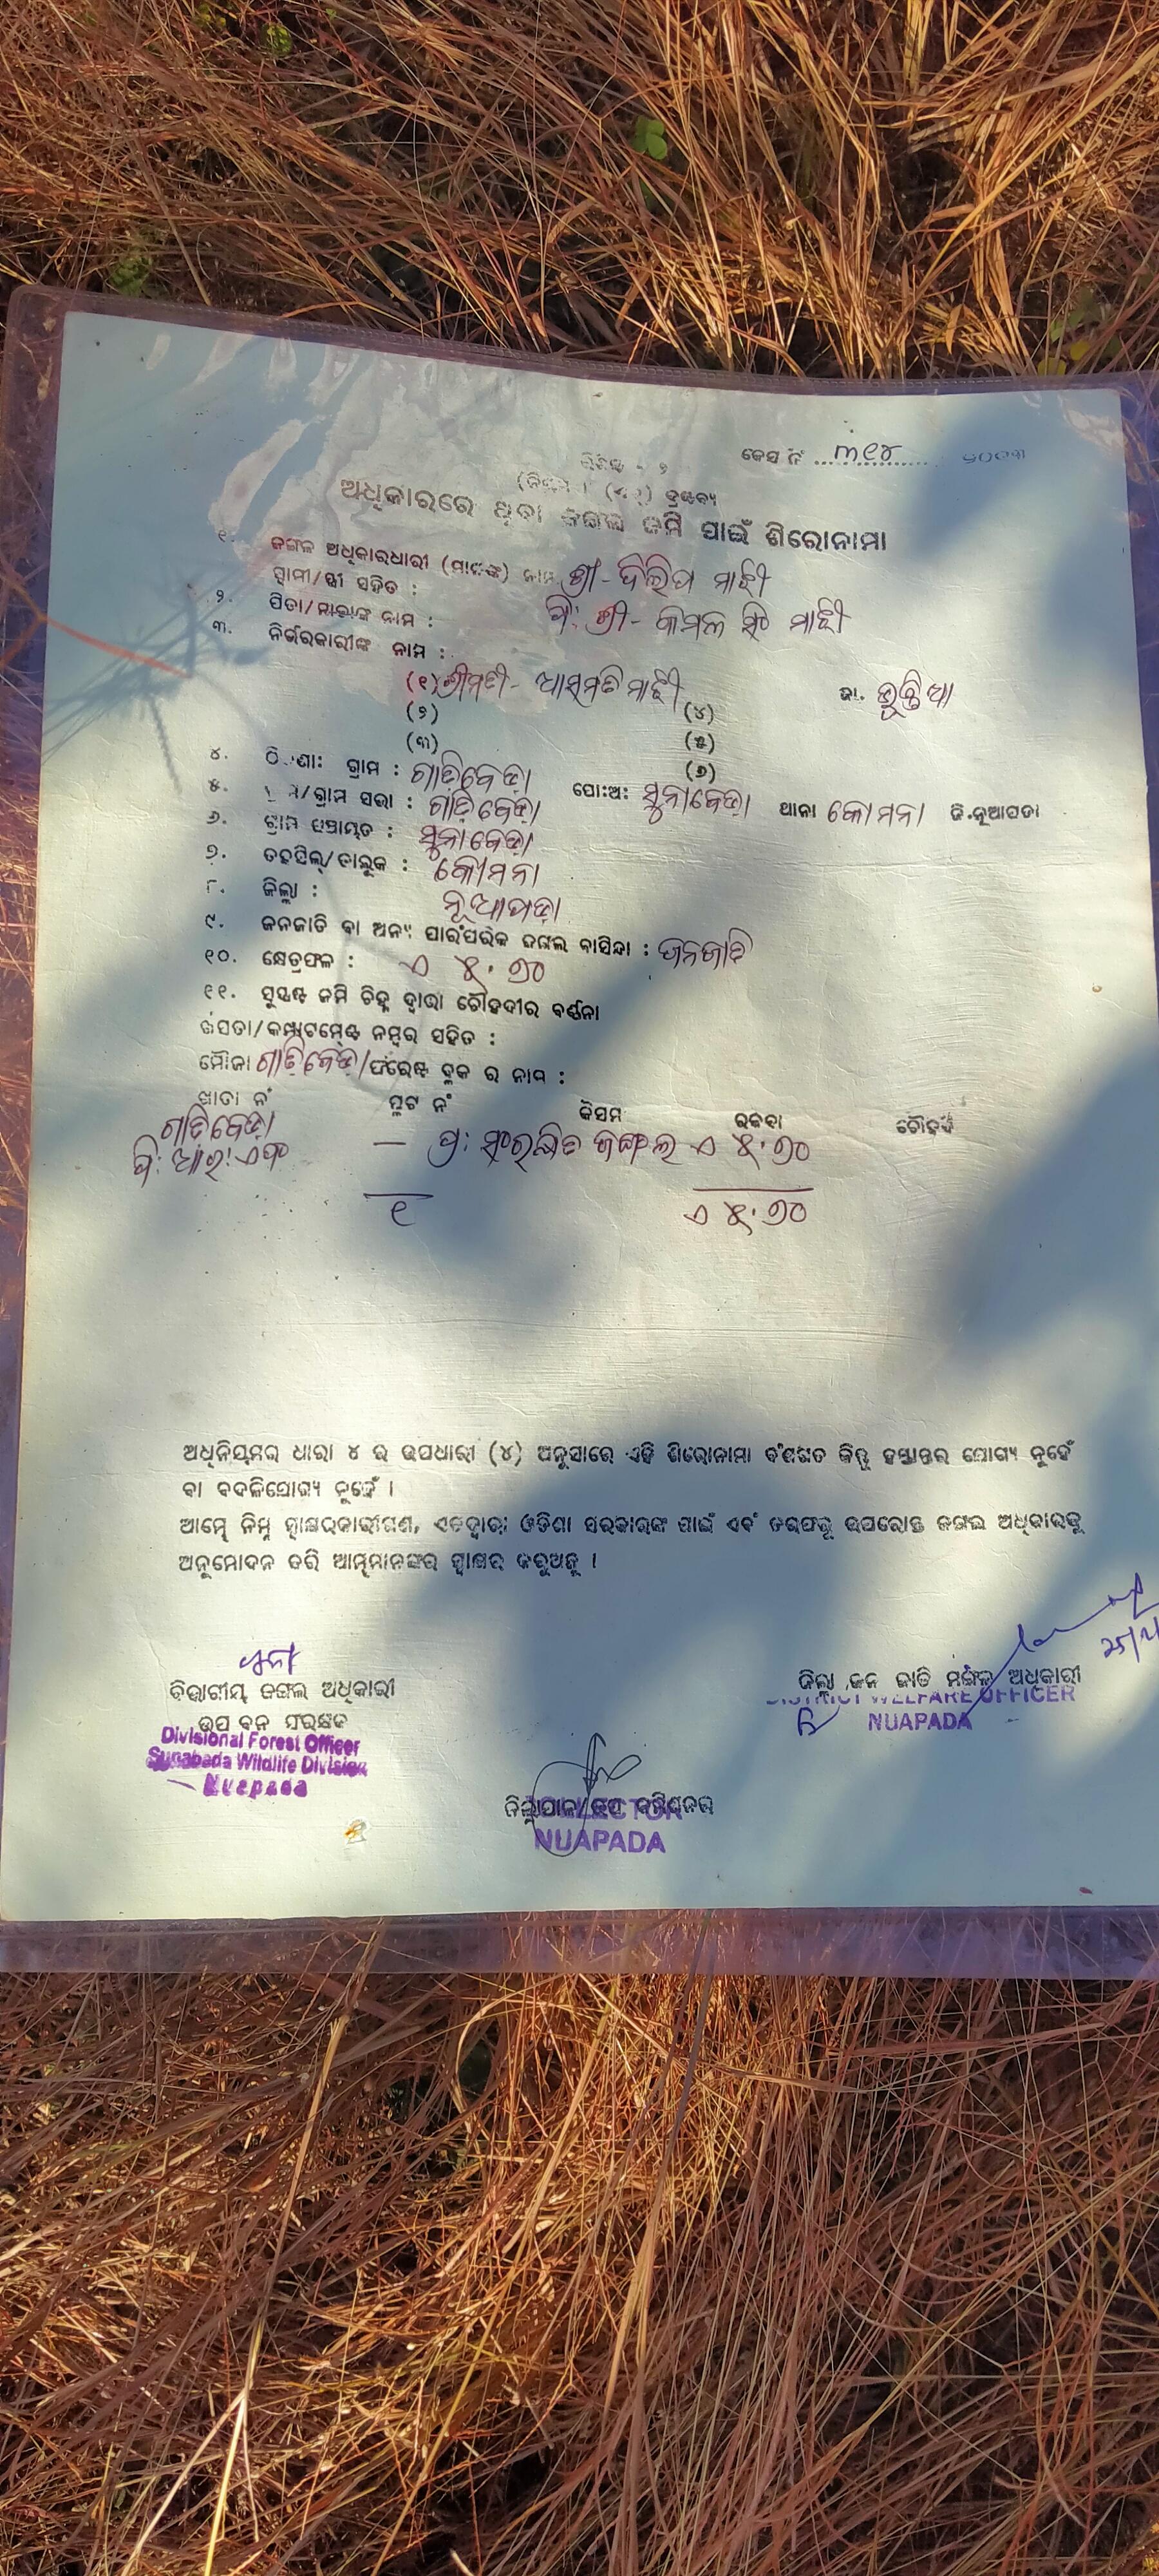 କେସ ନଂ ୩୧୪
ଅଧିକାରରେ ଥିବା ଜଙ୍ଗଲ ଜମି ପାଇଁ ଶିରୋନାମା
୧. ଜଙ୍ଗଲ ଅଧିକାରଧାରୀ (ମାନଙ୍କ) ନାମ ଶ୍ରୀ - ଦିଲିପ ମାଝୀ
ସ୍ଵାମୀ/ସ୍ତ୍ରୀ ସହିତ :
୨. ପିତା/ମାତାଙ୍କ ନାମ : ପି: ଶ୍ରୀ - କମଳ ସିଂ ମାଝୀ
୩. ନିର୍ଭରକାରୀଙ୍କ ନାମ :
(୧) ଶ୍ରୀମତୀ - ଆସମତି ମାଝୀ ଜା. ଭୁଞ୍ଜିଆ
(୨) (୪)
(୩) (୫)
(୬)
୪. ଠିକଣା: ଗ୍ରାମ : ଗାତିବେଡ଼ା ପୋ:ଅ: ସୁନାବେଡ଼ା ଥାନା କୋମନା ଜି.ନୂଆପଡା
୫. ଗ୍ରାମ/ଗ୍ରାମ ସଭା : ଗାତିବେଡ଼ା
୬. ଗ୍ରାମ ପଞ୍ଚାୟତ : ସୁନାବେଡ଼ା
୭. ତହସିଲ୍/ତାଲୁକ : କୋମନା
୮. ଜିଲ୍ଲା : ନୂଆପଡ଼ା
୯. ଜନଜାତି ବା ଅନ୍ୟ ପାରଂପରିକ ଜଙ୍ଗଲ ବାସିନ୍ଦା : ଜନଜାତି
୧୦. କ୍ଷେତ୍ରଫଳ : ଏ ୫.୭୦
୧୧. ସୁସ୍ପଷ୍ଟ ଜମି ଚିହ୍ନ ଦ୍ଵାରା ଚୌହଦୀର ବର୍ଣ୍ଣନା
ଖସଡା/କମ୍ପାର୍ଟମେଣ୍ଟ ନମ୍ବର ସହିତ :
ମୌଜା ଗାତିବେଡ଼ା/ଫରେଷ୍ଟ ବ୍ଲକ ର ନାମ :
ଖାତା ନଂ ପ୍ଲଟ ନଂ କିସମ ରକବା ଚୌହଦି
ଗାତିବେଡ଼ା — ପ୍ର: ସଂରକ୍ଷିତ ଜଙ୍ଗଲ ଏ ୫.୭୦
ପି: ଆର: ଏଫ
୧ ଏ ୫.୭୦
ଅଧିନିୟମର ଧାରା ୪ ର ଉପଧାରା (୪) ଅନୁସାରେ ଏହି ଶିରୋନାମା ବଂଶଗତ କିନ୍ତୁ ହସ୍ତାନ୍ତର ଯୋଗ୍ୟ ନୁହେଁ
ବା ବଦଳିଯୋଗ୍ୟ ନୁହେଁ ।
ଆମ୍ଭେ ନିମ୍ନ ସ୍ଵାକ୍ଷରକାରୀଗଣ, ଏତଦ୍ଵାରା ଓଡିଶା ସରକାରଙ୍କ ପାଇଁ ଏବଂ ତରଫରୁ ଉପରୋକ୍ତ ଜଙ୍ଗଲ ଅଧିକାରକୁ
ଅନୁମୋଦନ କରି ଆମ୍ଭମାନଙ୍କର ସ୍ଵାକ୍ଷର କରୁଅଛୁ ।
ବିଭାଗୀୟ ଜଙ୍ଗଲ ଅଧିକାରୀ
ଉପ ବନ ସଂରକ୍ଷକ
Divisional Forest Officer
Sunabada Wildlife Division
Nuapada
ଜିଲ୍ଲା ଜନ ଜାତି ମଙ୍ଗଳ ଅଧିକାରୀ
DISTRICT WELFARE OFFICER
NUAPADA
ଜିଲ୍ଲାପାଳ/ଉପ କମିଶନର
COLLECTOR
NUAPADA